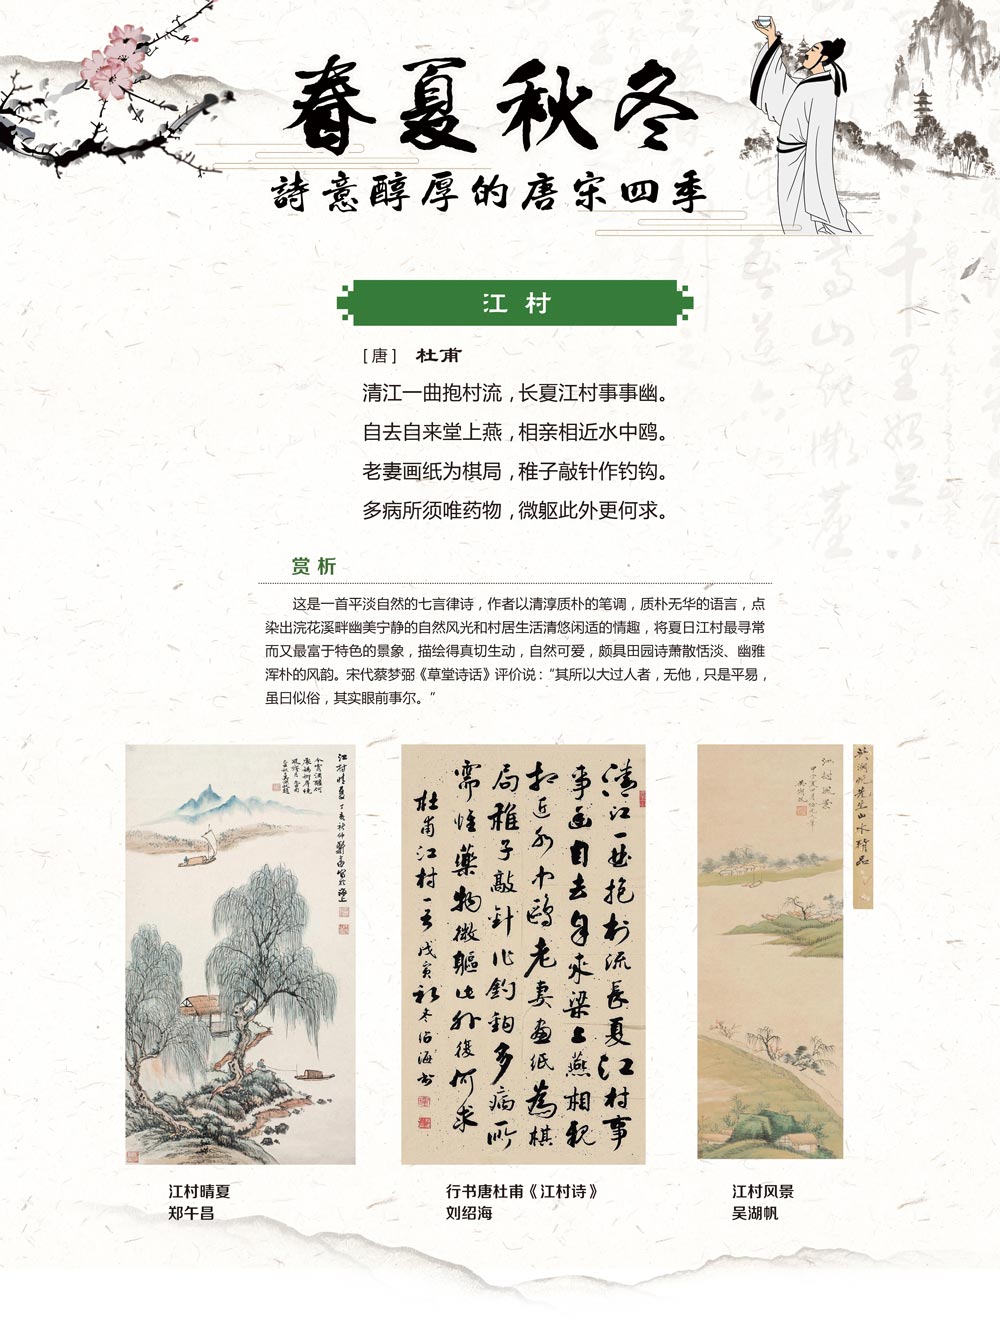 春夏秋冬
詩意醇厚的唐宋四季
江村
[唐] 杜甫
清江一曲抱村流，长夏江村事事幽。
自去自来堂上燕，相亲相近水中鸥。
老妻画纸为棋局，稚子敲针作钓钩。
多病所须唯药物，微躯此外更何求。
赏析
这是一首平淡自然的七言律诗，作者以清淳质朴的笔调，质朴无华的语言，点
染出浣花溪畔幽美宁静的自然风光和村居生活清悠闲适的情趣，将夏日江村最寻常
而又最富于特色的景象，描绘得真切生动，自然可爱，颇具田园诗萧散恬淡、幽雅
浑朴的风韵。宋代蔡梦弼《草堂诗话》评价说：“其所以大过人者，无他，只是平易，
虽曰似俗，其实眼前事尔。”
江村晴夏
清江一曲抱村流長夏江村事
事幽自去自来梁上燕相親
相近水中鷗老妻畫紙為棋
局稚子敲針作釣鉤多病所
需惟藥物微軀此外復何求
杜甫江村一首戊寅初冬绍海书
江村風景
吴湖帆先生山水精品
江村晴夏
郑午昌
行书唐杜甫《江村诗》
刘绍海
江村风景
吴湖帆